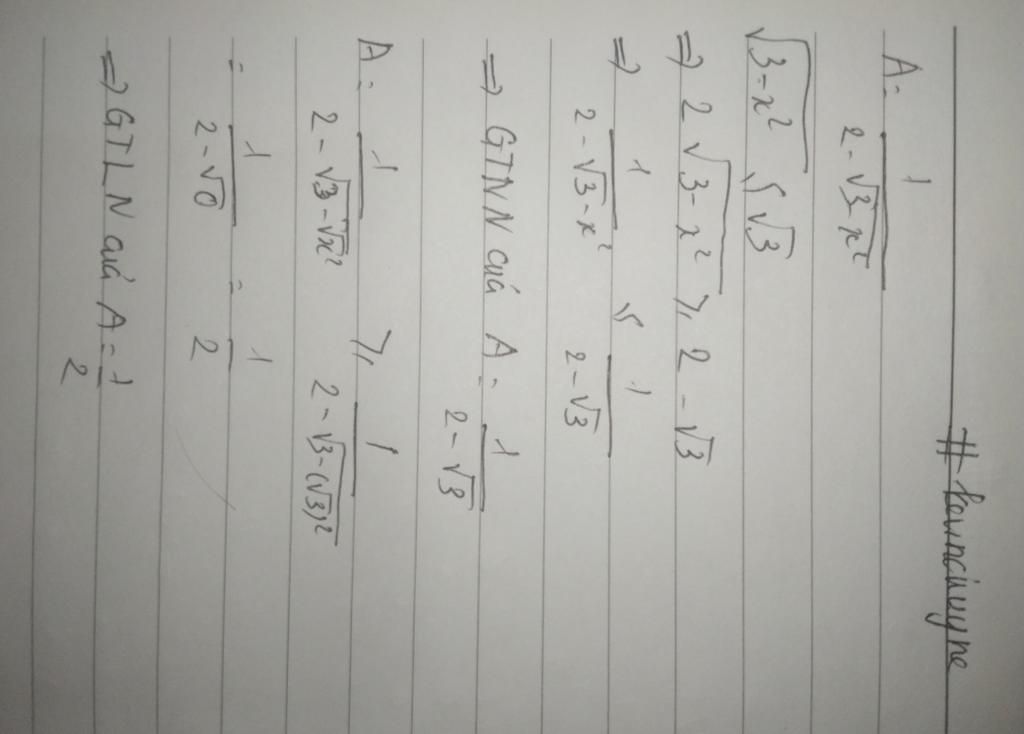 #kevincihuyne
A = 1/(2 - √(3-x²))
√(3-x²) ≤ √3
=> 2 √(3-x²) ≥ 2 - √3
=> 1/(2 - √3-x²) ≤ 1/(2 - √3)
=> GTNN cuả A = 1/(2 - √3)
A = 1/(2 - √(3-√x²)) ≥ 1/(2 - √(3-(√3)²))
= 1/(2 - √0) = 1/2
=> GTLN cuả A = 1/2